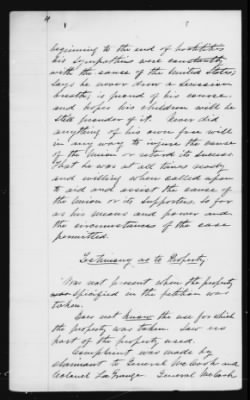 4
beginning to the end of hostilities
his sympathies were constantly
with the cause of the United States,
says he never drew a secession
breath, is proud of his course
and hopes his children will be
still prouder of it. Never did
anything of his own free will
in any way to injure the cause
of the Union or retard its success.
That he was at all times ready
and willing when called upon
to aid and assist the cause of
the Union or its supporters so far
as his means and power and
the circumstances of the case
permitted.
Testimony as to Property
Was not present when the property
specified in the petition was
taken.
Does not know the use for which
the property was taken. Saw no
part of the property used.
Complaint was made by
claimant to General McCook and
Colonel La Grange. General McCook